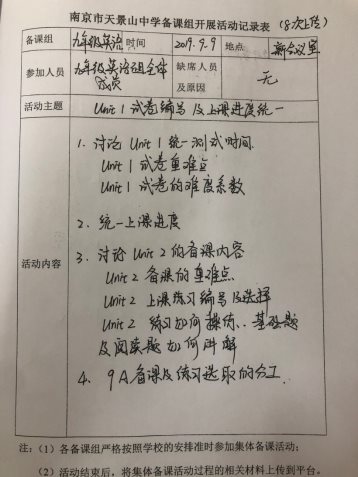 南京市天景山中学备课组开展活动记录表 (8次上传)
备课组 九年级英语 时间 2019.9.9 地点 新会议室
参加人员 九年级英语组全体成员 缺席人员及原因 无
活动主题 Unit 1 试卷编号及上课进度统一
活动内容
1. 讨论 Unit 1 统一测试时间
Unit 1 试卷重难点
Unit 1 试卷的难度系数
2. 统一上课进度
3. 讨论 Unit 2 的备课内容
Unit 2 备课的重难点
Unit 2 上课练习编号及选择
Unit 2 练习如何操练..基础题
及阅读题如何讲解
4. 9A 备课及练习选取的分工
注:(1)各备课组严格按照学校的安排准时参加集体备课活动;
(2)活动结束后,将集体备课活动过程的相关材料上传到平台。